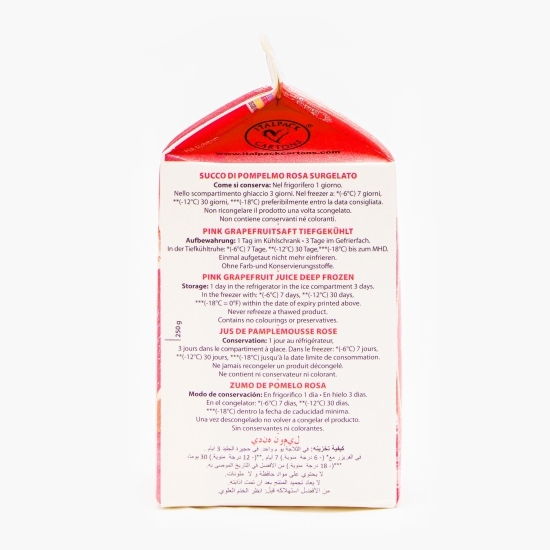 ITALPACK
CARTONS
®
www.italpackcartons.com
SUCCO DI POMPELMO ROSA SURGELATO
Come si conserva: Nel frigorifero 1 giorno.
Nello scompartimento ghiaccio 3 giorni. Nel freezer a: *(-6°C) 7 giorni,
**(-12°C) 30 giorni, ***(-18°C) preferibilmente entro la data consigliata.
Non ricongelare il prodotto una volta scongelato.
Non contiene conservanti né coloranti.
PINK GRAPEFRUITSAFT TIEFGEKÜHLT
Aufbewahrung: 1 Tag im Kühlschrank • 3 Tage im Gefrierfach.
In der Tiefkühltruhe: *(-6°C) 7 Tage, **(-12°C) 30 Tage,***(-18°C) bis zum MHD.
Einmal aufgetaut nicht mehr einfrieren.
Ohne Farb-und Konservierungsstoffe.
PINK GRAPEFRUIT JUICE DEEP FROZEN
Storage: 1 day in the refrigerator in the ice compartment 3 days.
In the freezer with: *(-6°C) 7 days, **(-12°C) 30 days,
***(-18°C = 0°F) within the date of expiry printed above.
Never refreeze a thawed product.
Contains no colourings or preservatives.
250 g
JUS DE PAMPLEMOUSSE ROSE
Conservation: 1 jour au réfrigérateur,
3 jours dans le compartiment à glace. Dans le freezer: *(-6°C) 7 jours,
**(-12°C) 30 jours, ***(-18°C) jusqu'à la date limite de consommation.
Ne jamais recongeler un produit décongelé.
Ne contient ni conservateur ni colorant.
ZUMO DE POMELO ROSA
Modo de conservación: En frigorifico 1 dia • En hielo 3 dias.
En el congelator: *(-6°C) 7 dias, **(-12°C) 30 dias,
***(-18°C) dentro la fecha de caducidad minima.
Una vez descongelado no volver a congelar el producto.
Sin conservantes ni colorantes.
كيفية تخزينه: في الثلاجة يوم واحد. في حجيرة الجليد 3 ايام
في الفريزر مع* (- 6 درجة مئوية) 7 أيام .**(- 12 درجة مئوية) 30 يومًا
***(- 18 درجة مئوية) من الافضل في التاريخ الموصى به.
لا يحتوي على مواد حافظة و لا ملونات.
لا يعاد تجميد المنتج بعد ان تمت اذابته.
من الافضل استهلاكه قبل: انظر الختم العلوي.